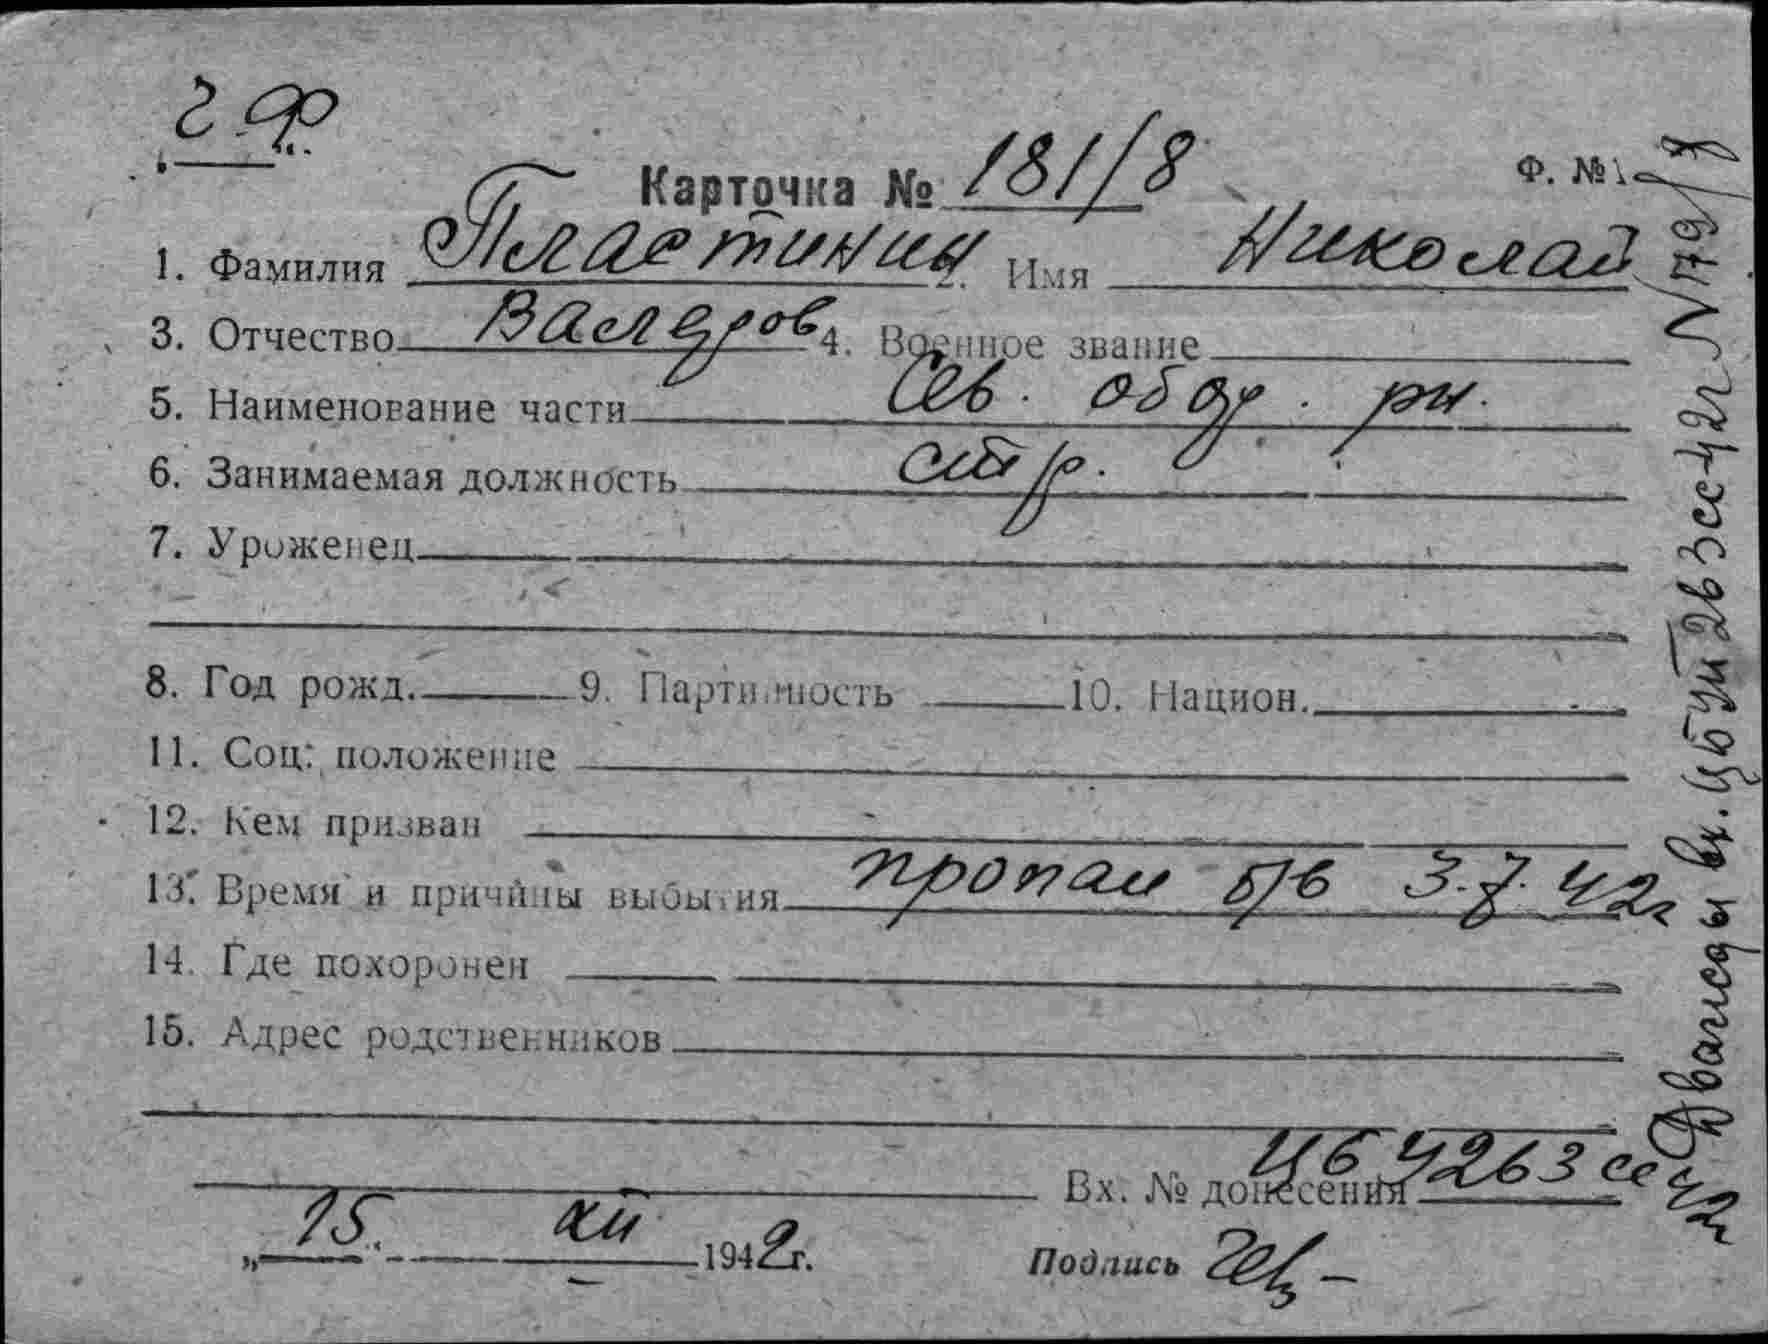 Карточка № 181/8
Ф. №
1. Фамилия Пластинин 2. Имя Николай
3. Отчество Валедров 4. Военное звание
5. Наименование части Сев. обор. рн.
6. Занимаемая должность стр.
7. Уроженец
8. Год рожд. 9. Партийность 10. Национ.
11. Соц. положение
12. Кем призван
13. Время и причины выбытия пропал б/в 3.7.42г
14. Где похоронен
15. Адрес родственников
Вх. № донесения 4263 сс 42г
„15" XII 1942г. Подпись
Дважды вх.